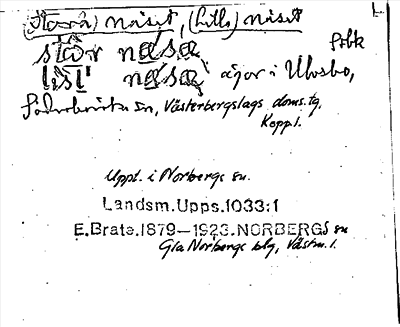 (Stora) näset, (Lilla) näset
fobk
ägor i Ulvsbo,
Söderbärke sn, Västerbergslags doms.tg,
Kopp.l.
Uppt. i Norbergs sn.
Landsm.Upps.1033:1
E.Brate.1879—1923.NORBERGS sn
Gla Norbergs blg, Västm. l.